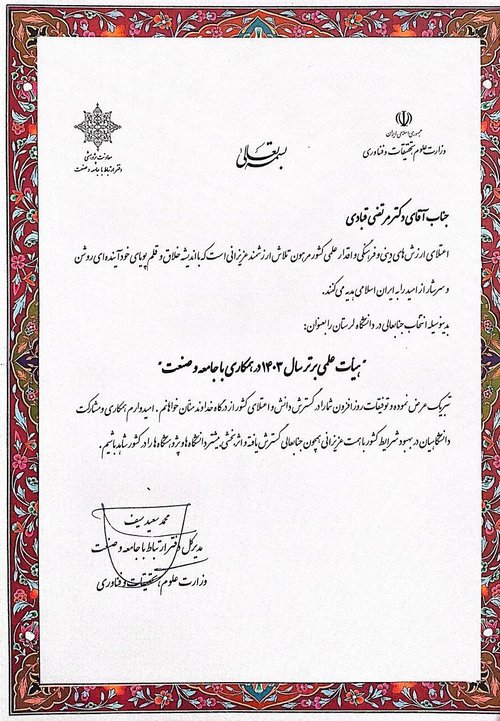 جمهوری اسلامی ایران
وزارت علوم، تحقیقات و فناوری
بسمه تعالی
معاونت پژوهشی
دفتر ارتباط با جامعه و صنعت
جناب آقای دکتر مرتضی قبادی
اعتلای ارزش های دینی و فرهنگی و اقتدار علمی کشور مرهون تلاش ارزشمند عزیزانی است که با اندیشه خلاق و قلم پویای خود آینده ای روشن
و سرشار از امید را به ایران اسلامی هدیه می کنند.
بدینوسیله انتخاب جنابعالی در دانشگاه لرستان را بعنوان:
"هیأت علمی برتر سال ۱۴۰۳ در همکاری با جامعه و صنعت"
تبریک عرض نموده و توفیقات روز افزون شما را در گسترش دانش و اعتلای کشور از درگاه خداوند منّان خواهانم. امیدوارم همکاری و مشارکت
دانشگاهیان در بهبود شرایط کشور با همت عزیزانی همچون جنابعالی گسترش یافته و اثربخشی بیشتر دانشگاه ها و پژوهشگاه ها را در کشور شاهد باشیم.
محمد سعید سیف
مدیرکل دفتر ارتباط با جامعه و صنعت
وزارت علوم، تحقیقات و فناوری